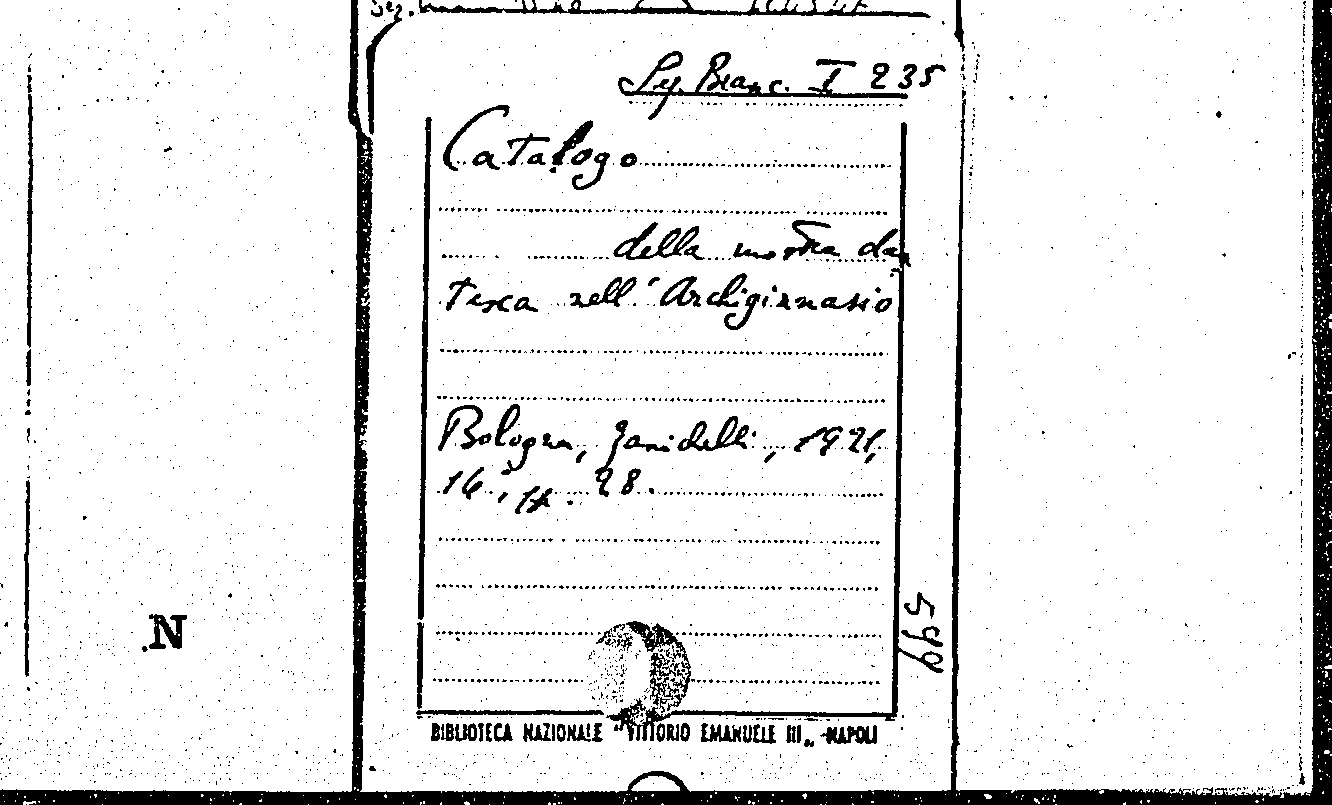 Sez.
Sez. Branc. I 235
Catalogo
della mostra dan
tesca nell'Archiginnasio
Bologna, Zanichelli, 1921,
16°, pp. 28.
599
N
BIBLIOTECA NAZIONALE "VITTORIO EMANUELE III„ - NAPOLI